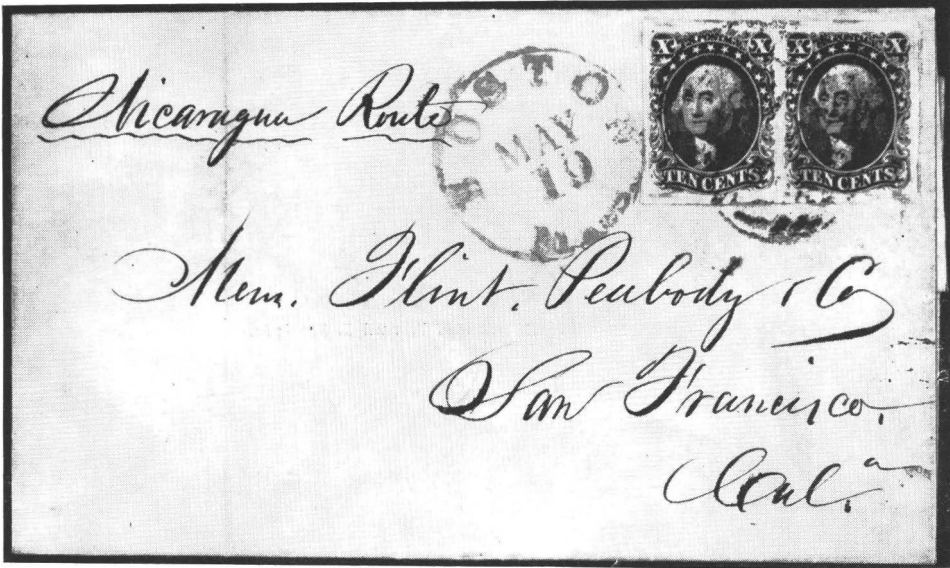 X X X X
Nicaragua Route
BOSTON
MAY
10
TEN CENTS TEN CENTS
Messrs. Flint, Peabody & Co
San Francisco,
Cal.ª